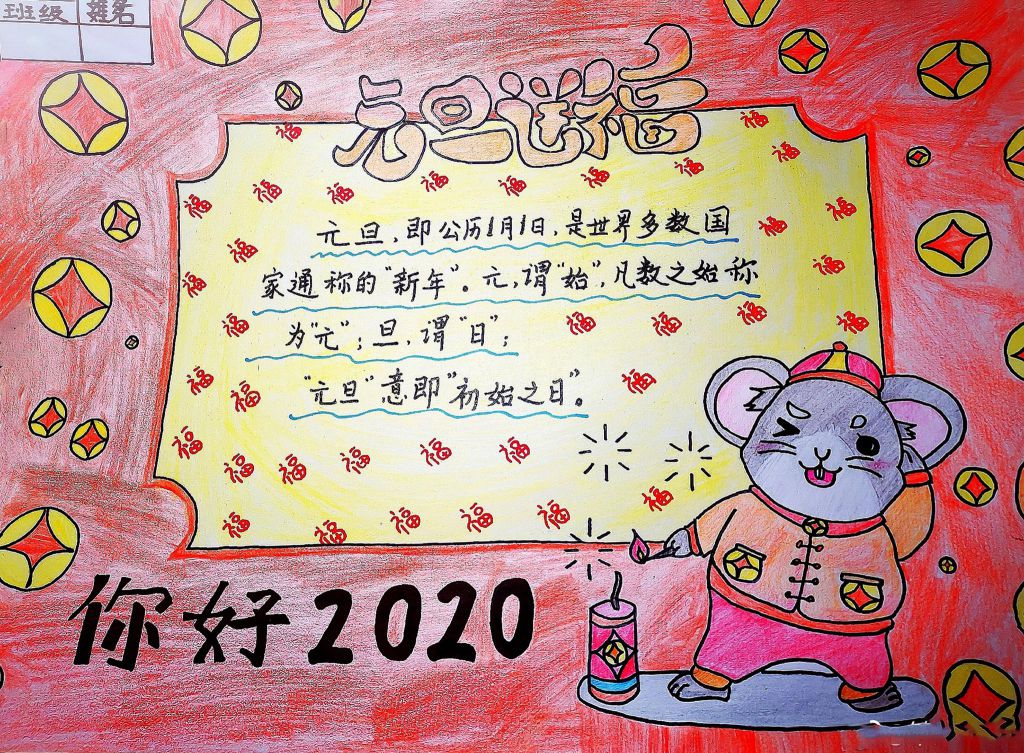 班级 姓名
元旦送福
元旦,即公历1月1日,是世界多数国
家通称的"新年"。元,谓"始",凡数之始称
为"元";旦,谓"日";
"元旦"意即"初始之日"。
你好2020
福 福 福 福 福 福 福 福 福 福 福 福 福 福 福 福 福 福 福 福 福 福 福 福 福 福 福 福 福 福 福 福 福 福 福 福 福